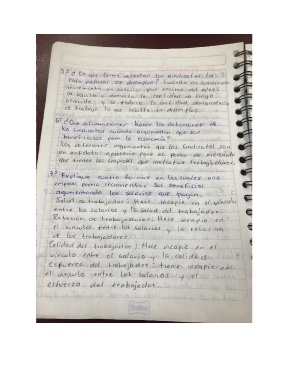 5.º ¿De que forma afectan los sindicatos la
tasa natural de desempleo? Cuando un sindicato
incrementa un salario por encima del nivel
de equilibrio aumenta la cantidad de trabajo
ofrecida y se reduce la cantidad demandada
de trabajo lo que resulta en desempleo.
6º ¿Que afirmaciones hacen los defensores de
los sindicatos cuando argumentan que son
beneficiosos para la economía?
Los defensores argumentan que los sindicatos son
un antídoto necesario para el poder de mercado
que tienen las empresas que contratan trabajadores.
7.º Explique cuatro formas en las cuales una
empresa podría incrementar sus beneficios
argumentando los salarios que pagan.
Salud de trabajador: Hace incapie en el vínculo
entre los salarios y la salud del trabajador.
Rotacion de trabajadores: Hace incapie en
el vinculo entre los salarios y la rotación
de los trabajadores.
Calidad del trabajador: Hace incapie en el
vinculo entre el salario y la calidad.
esfuerzo del trabajador: tiene incapie en
el vinculo entre los salarios y el
esfuerzo del trabajador.